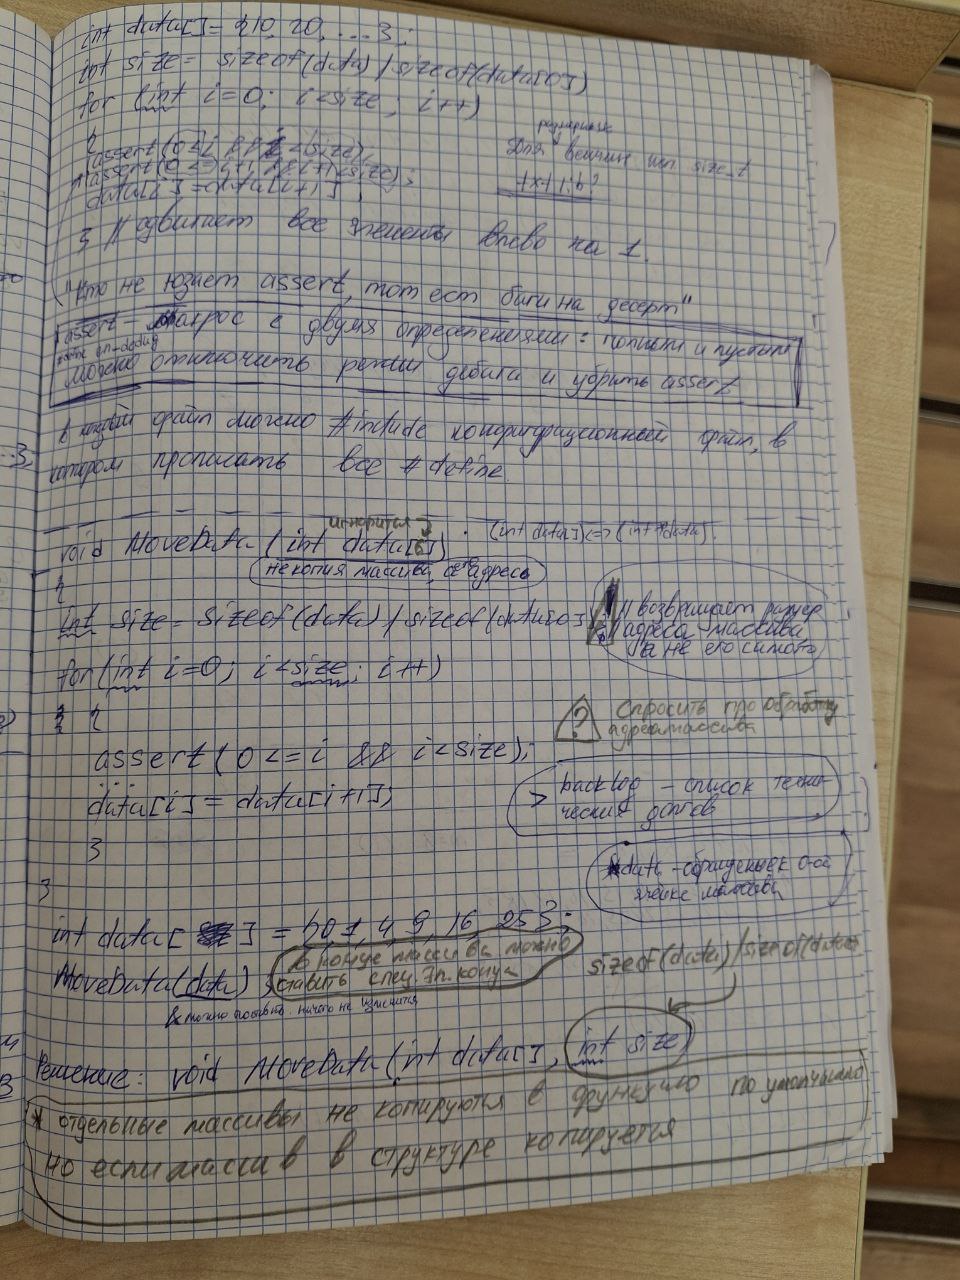 int data[] = {10, 20, ...};
int size = sizeof(data) / sizeof(data[0])
for (int i=0; i<size; i++)
{
assert(0<=i && i<size);
assert(0<=i+1 && i+1<size);
data[i]=data[i+1];
} // сдвигает все элементы влево на 1.
размерных
Для величин исп. size_t
"Кто не юзает assert, тот ест баги на десерт"
assert – макрос с двумя определениями: полным и пустым
можно отключить режим дебага и убрать assert
в каждый файл можно #include конфигурационный файл, в
котором прописать все #define.
игнорится
void MoveData (int data[6]) · (int data[]<=>(int *data).
не копия массива, а его адрес
{
int size = sizeof(data) / sizeof(data[0])
// возвращает размер
адреса массива
а не его самого
for(int i=0; i<size; i++)
{
? Спросить про обработку
адреса массива
assert(0<=i && i<size);
data[i] = data[i+1];
> backlog – список техни-
ческих долгов
}
*data – обращение к 0-ой
ячейке массива
}
int data[] = {0,1,4,9,16,25};
MoveData(data)
В конце массива можно
ставить спец. эл. конца
sizeof(data)/sizeof(data
& можно поставить. ничего не изменится
Решение: void MoveData(int data[], int size)
* отдельные массивы не копируются в функцию по умолчанию
но если массив в структуре копируется